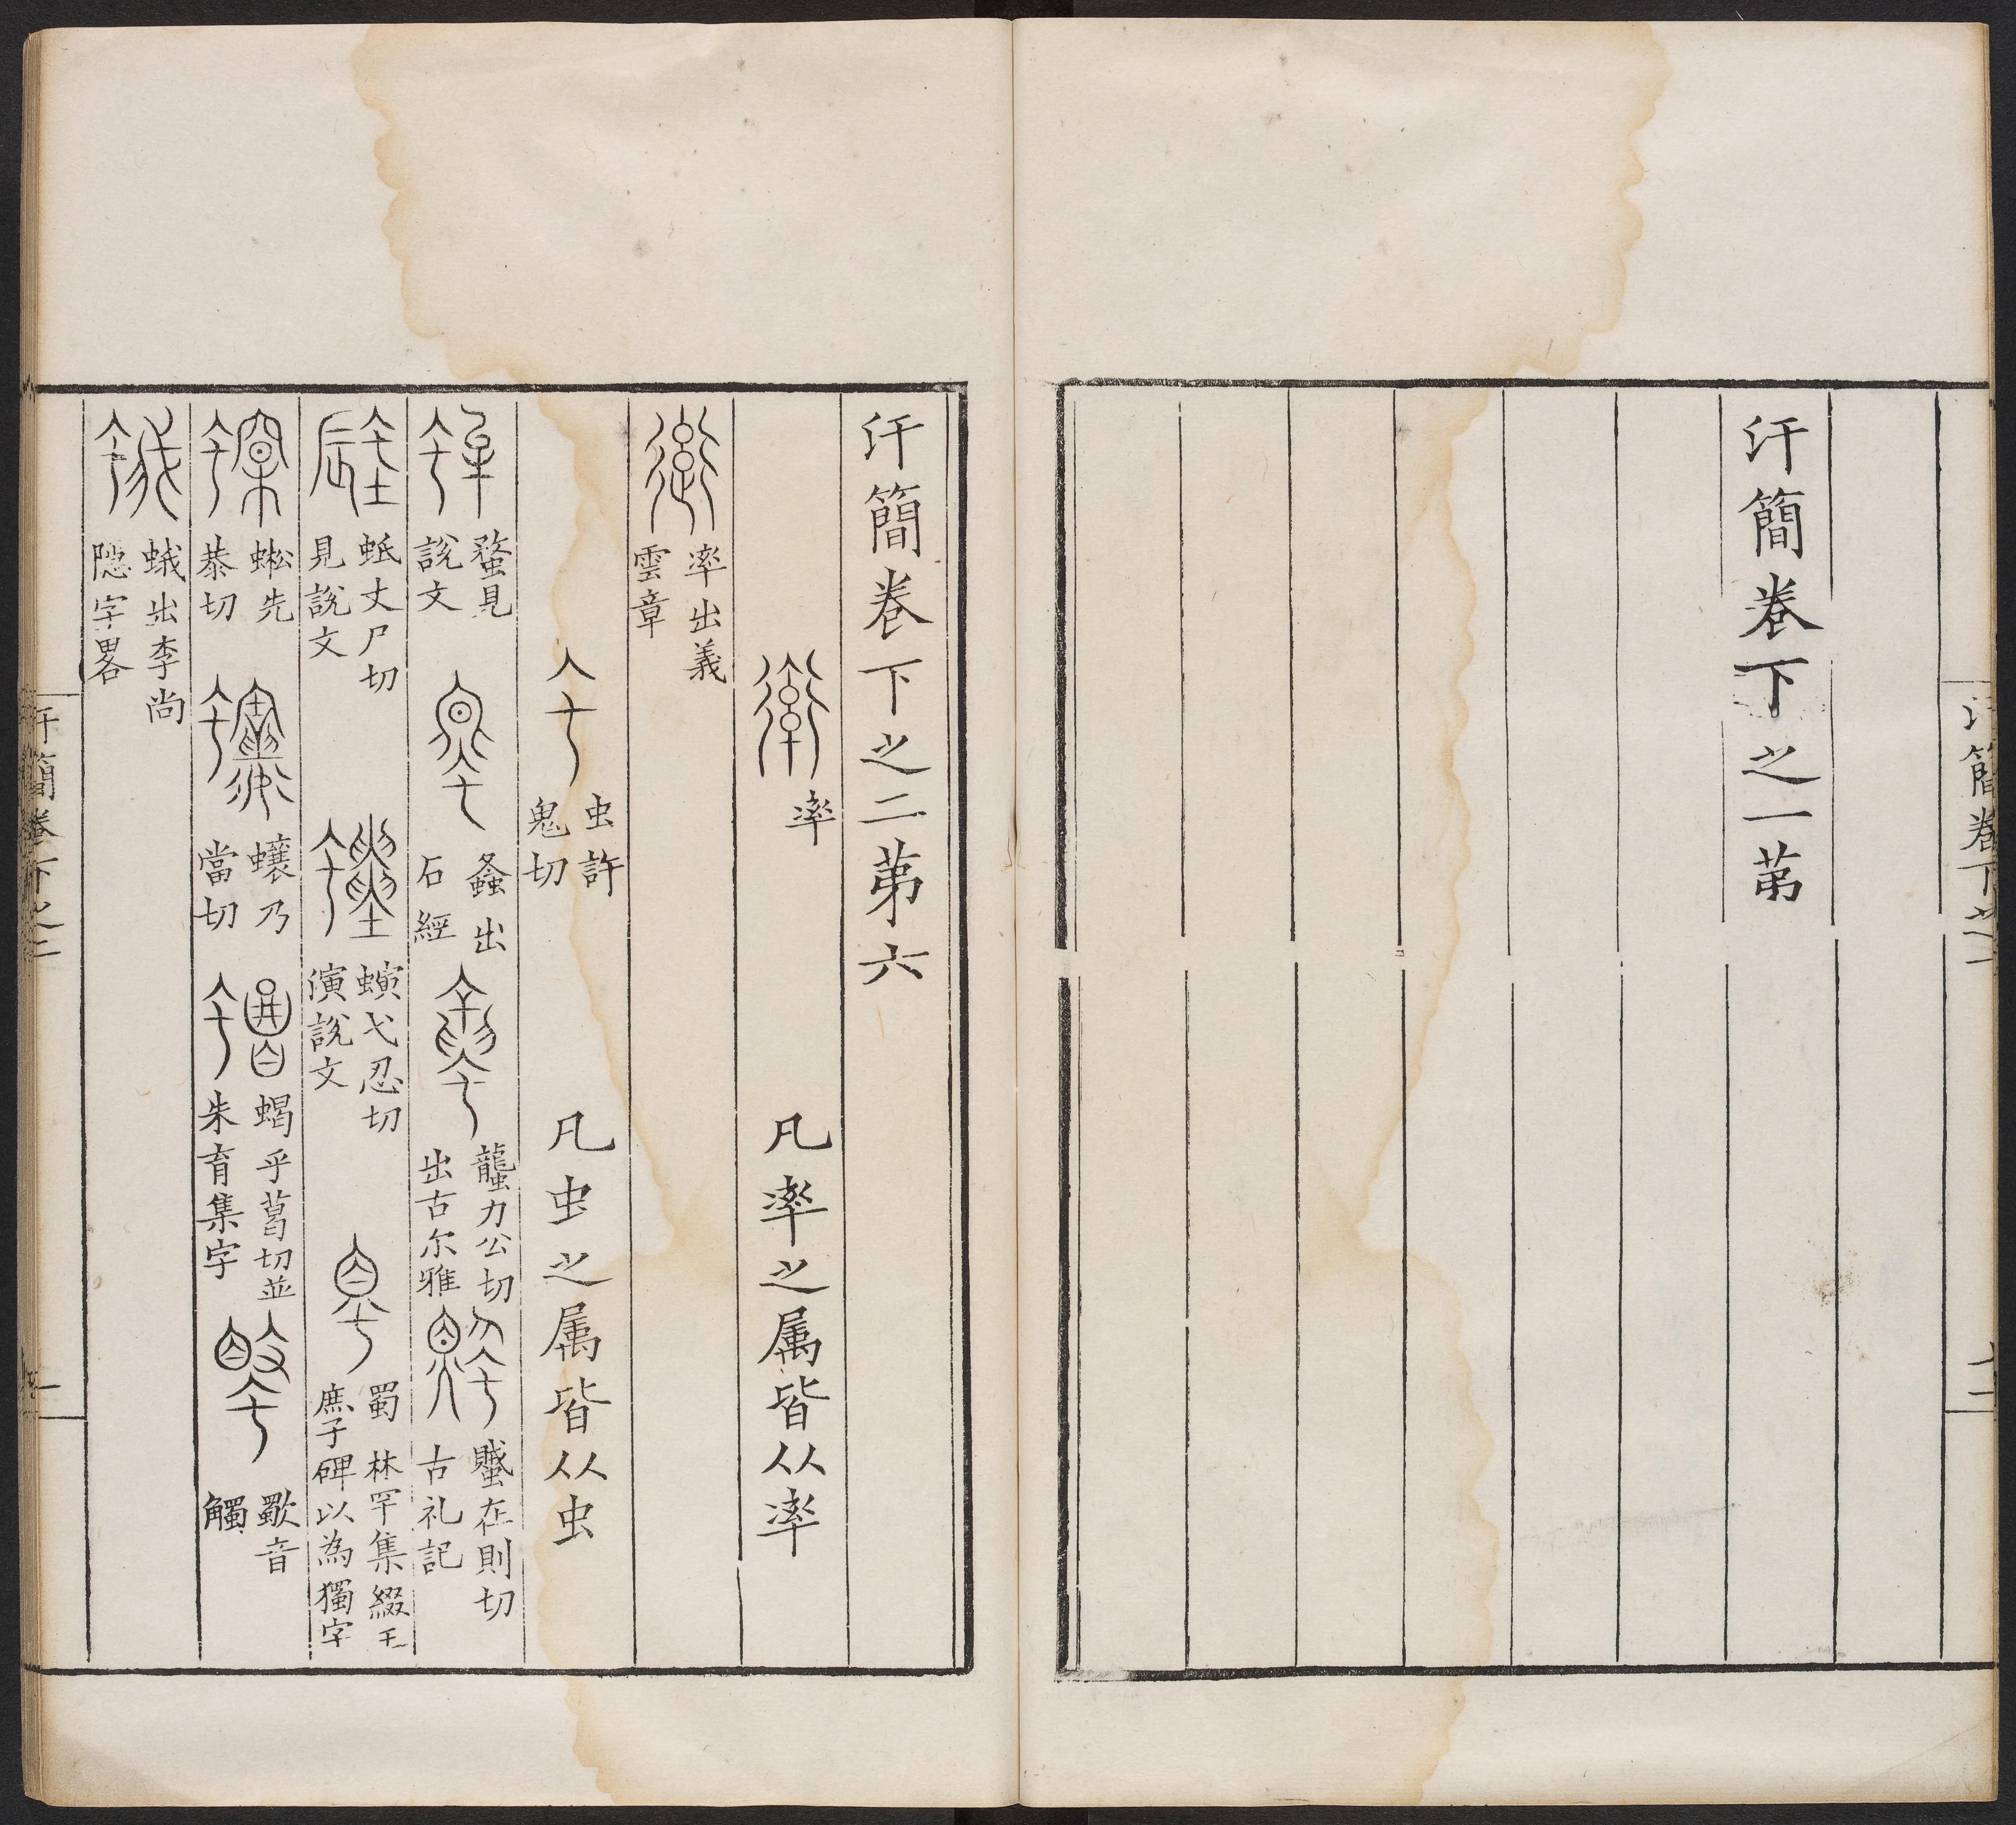 汗簡卷下之一第
汗簡卷下之二第六
率 凡率之属皆从率
率出義雲章
虫許鬼切 凡虫之属皆从虫
蝥見說文 螽出石經 蠪力公切出古尔雅 蠈在則切古礼記
蚳丈尸切見說文 螾弋忍切演說文 蜀林罕集綴王庶子碑以為獨字
蜙先恭切 蠰乃當切 蝎乎葛切並朱育集字 歜音觸
蛾出李尚隠字畧
汗簡卷下之二
一